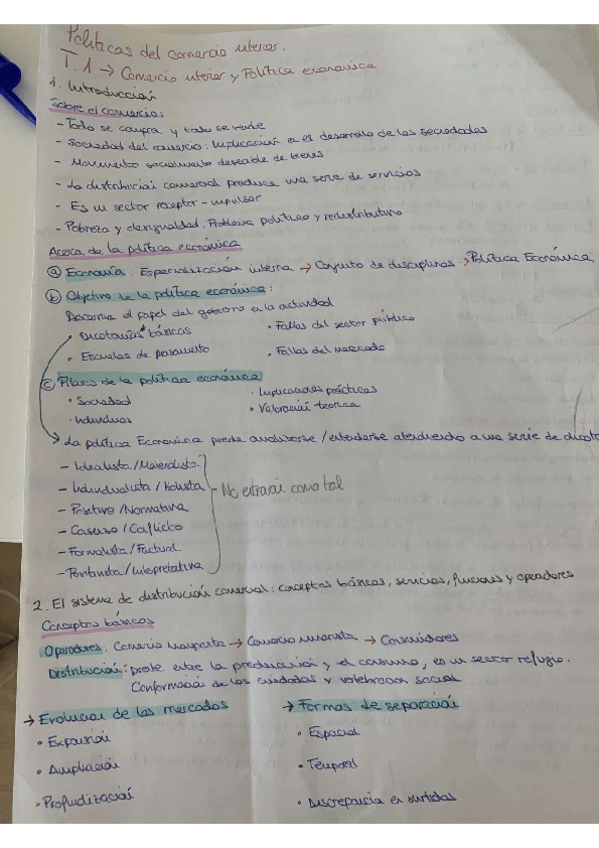 Políticas del comercio interior.
T.1 → Comercio interior y Política económica
1. Introducción
Sobre el comercio:
- Todo se compra y todo se vende
- Sociedad del comercio: Implicación en el desarrollo de las sociedades
- Movimiento socialmente deseable de bienes
- La distribución comercial produce una serie de servicios
- Es un sector receptor-impulsor
- Pobreza y desigualdad. Problema político y redistributivo
Acerca de la política económica
ⓐ Economía: Especialización interna → Conjunto de disciplinas → Política Económica
ⓑ Objetivo de la política económica:
Discernir el papel del gobierno en la actividad
• Dicotomías básicas • Fallos del sector público
• Escuelas de pensamiento • Fallos del mercado
ⓒ Pilares de la política económica • Implicaciones prácticas
• Sociedad • Valoración teórica
• Individuos
→ La política Económica puede analizarse/entenderse atendiendo a una serie de dicoto
- Idealista/Materialista
- Individualista/Holista - No entrarán como tal
- Positivo/Normativa
- Consenso/Conflicto
- Formalista/Factual
- Positivista/Interpretativa
2. El sistema de distribución comercial: conceptos básicos, servicios, funciones y operadores
Conceptos básicos
Operadores: Comercio mayorista → Comercio minorista → Consumidores
Distribución: entre la producción y el consumo, es un sector refugio.
Conformación de las ciudades y vertebración social
→ Evolución de los mercados → Formas de separación
• Expansión • Espacial
• Ampliación • Temporal
• Profundización • Discrepancia en surtidos